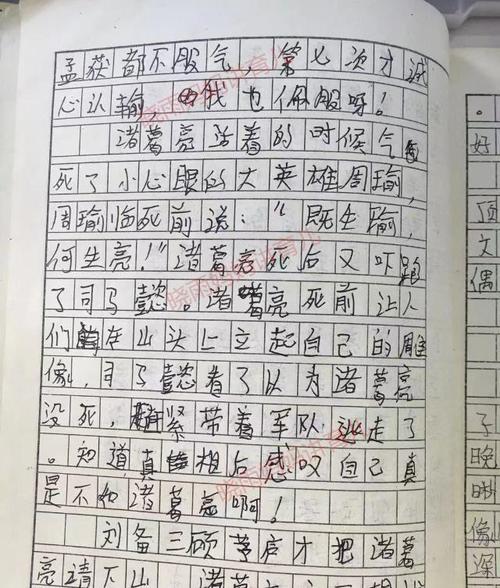 孟获都不服气，第七次才诚
心认输，我也佩服呀！
诸葛亮活着的时候气
死了小心眼的大英雄周瑜，
周瑜临死前说：“既生瑜，
何生亮！”诸葛亮死后又吓跑
了司马懿。诸葛亮死前让人
们在山头上立起自己的雕
像，司马懿看了以为诸葛亮
没死，赶紧带着军队逃走了
。知道真相后感叹自己真
是不如诸葛亮啊！
刘备三顾茅庐才把诸葛
亮请下山
好
文
偶
子
晚
时
像
深